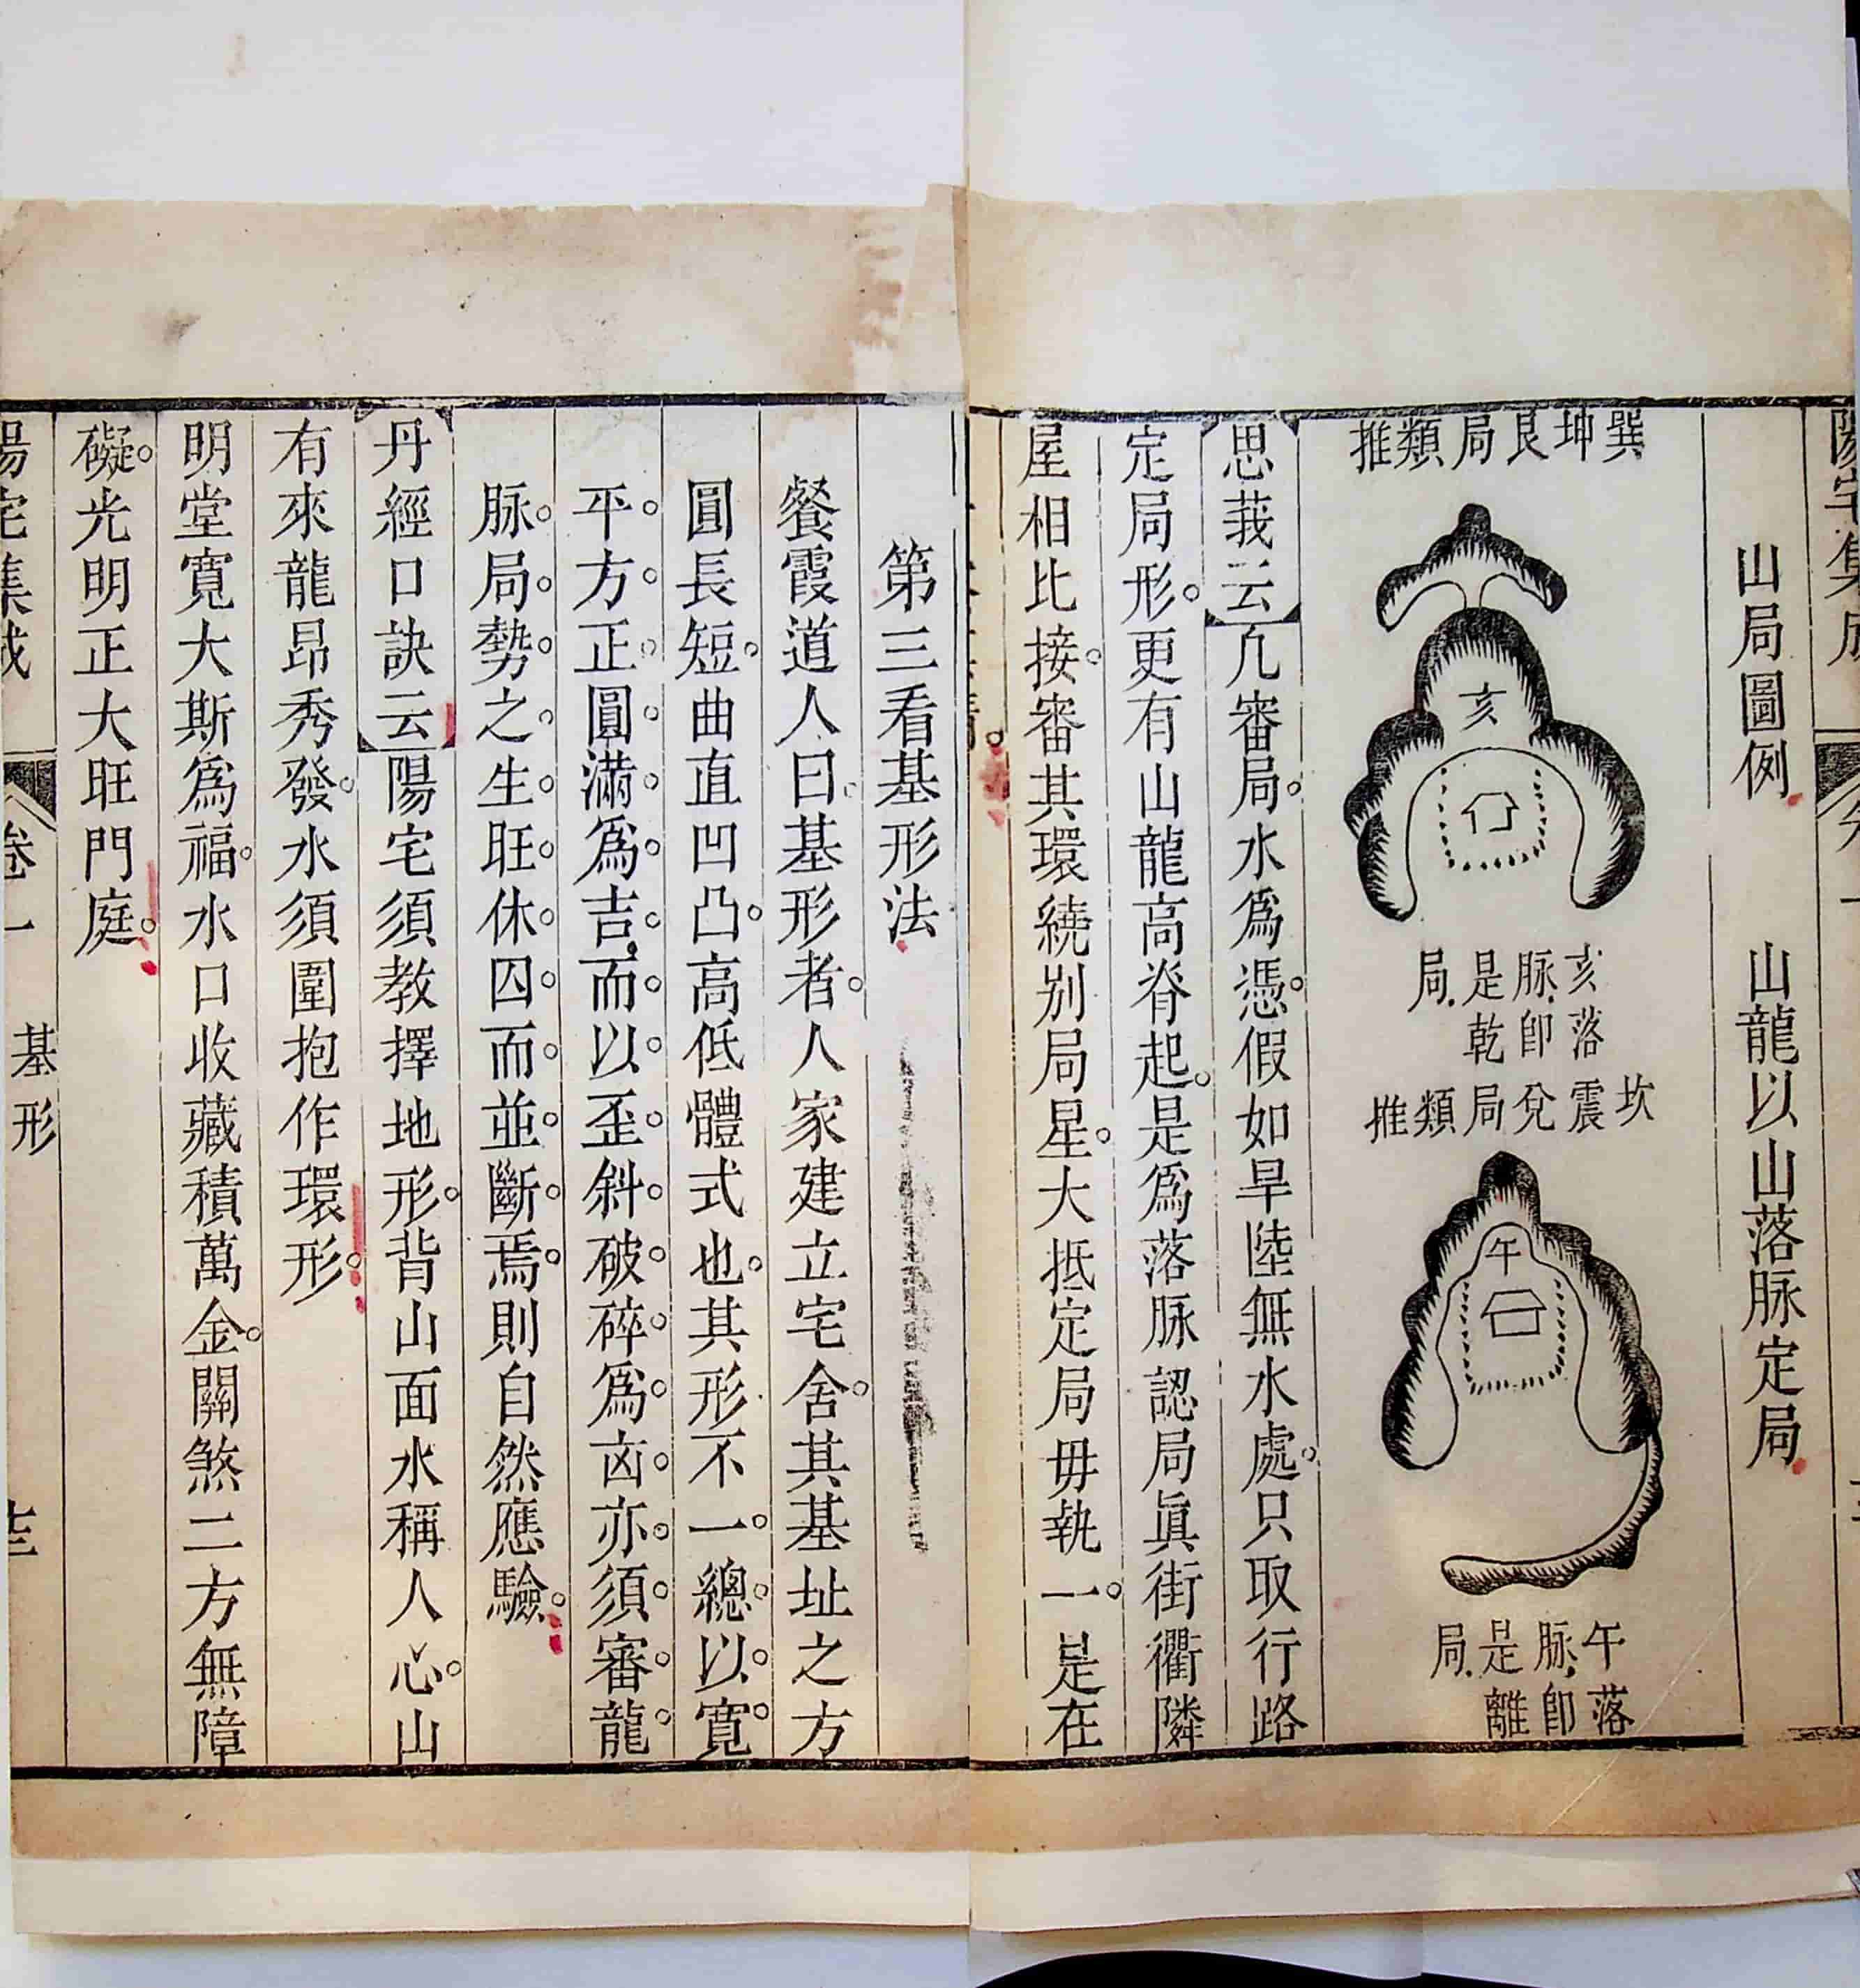 陽宅集成
山局圖例　山龍以山落脉定局
巽坤艮局類推
亥
亥落
脉即
是乾
局
坎震兌局類推
午
午落
脉即
是離
局
思莪云凢審局水爲憑假如旱陸無水處只取行路
定局形更有山龍高脊起是爲落脉認局眞街衢隣
屋相比接審其環繞別局星大抵定局毋執一是在
第三看基形法
餐霞道人曰基形者人家建立宅舍其基址之方
圓長短曲直凹凸高低體式也其形不一總以寬
平方正圓滿爲吉而以歪斜破碎爲㐫亦須審龍
脉局勢之生旺休囚而並斷焉則自然應驗
丹經口訣云陽宅須教擇地形背山面水稱人心山
有來龍昂秀發水須圍抱作環形
明堂寬大斯爲福水口收藏積萬金關煞二方無障
礙光明正大旺門庭
陽宅集成　卷一　基形